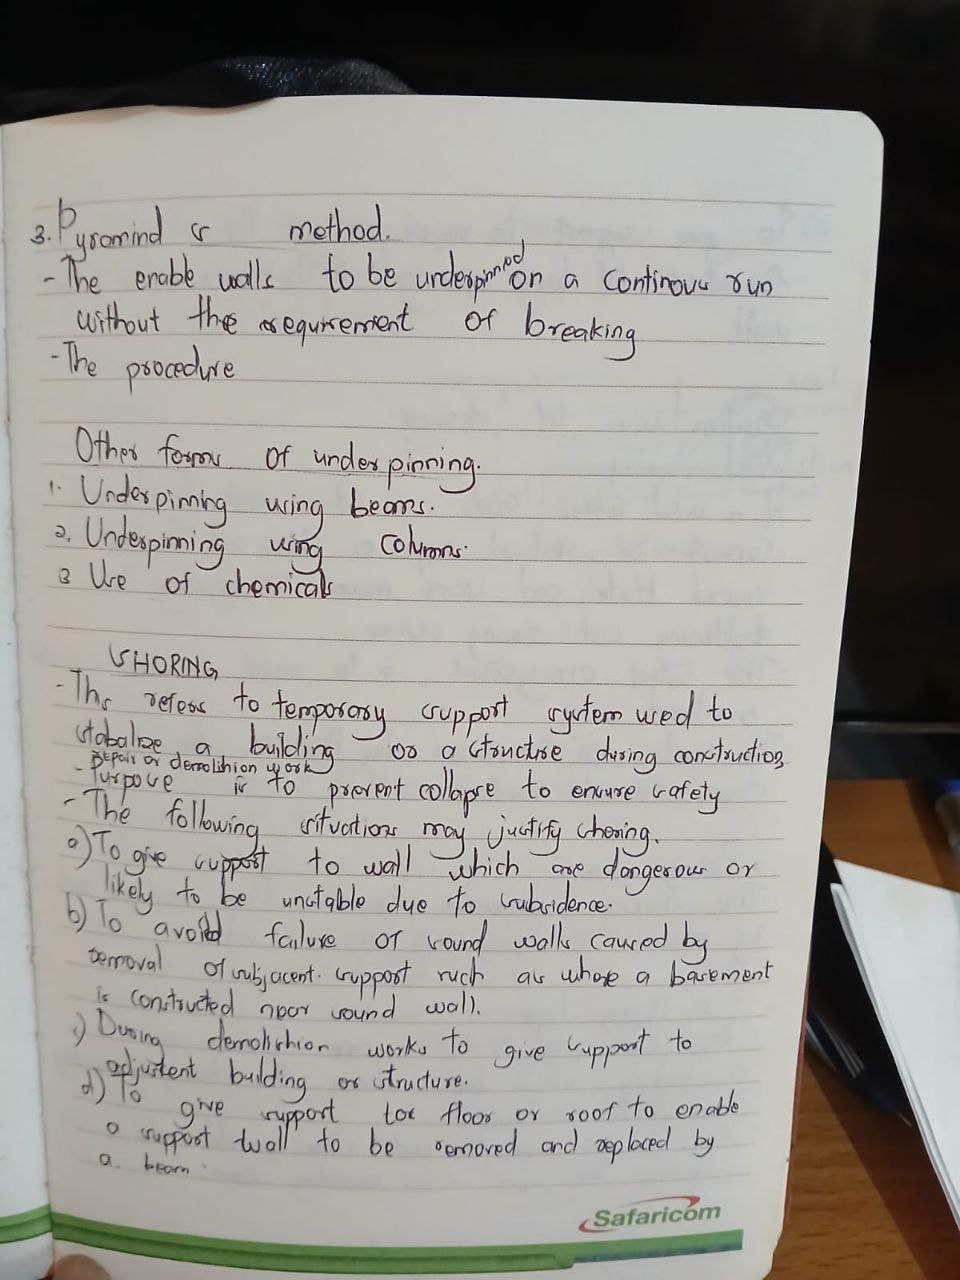 3. Pyromind is method.
- The enable walls to be underpinned on a continous run
without the requirement of breaking
- The procedure
Other forms of underpinning.
1. Underpinning using beams.
2. Underpinning using columns.
3 Use of chemicals
SHORING
- This refers to temporary support system used to
stabalize a building or a structure during construction
repair or demolishion work
- Purpose is to prevent collapse to ensure safety
- The following situations may justify shoring.
a) To give support to wall which are dangerous or
likely to be unstable due to subsidence.
b) To avoid failure of sound walls caused by
removal of subjacent support such as where a basement
is constructed near sound wall.
c) During demolishion works to give support to
adjustent building or structure.
d) To give support for floor or roof to enable
a support wall to be removed and replaced by
a beam.
Safaricom